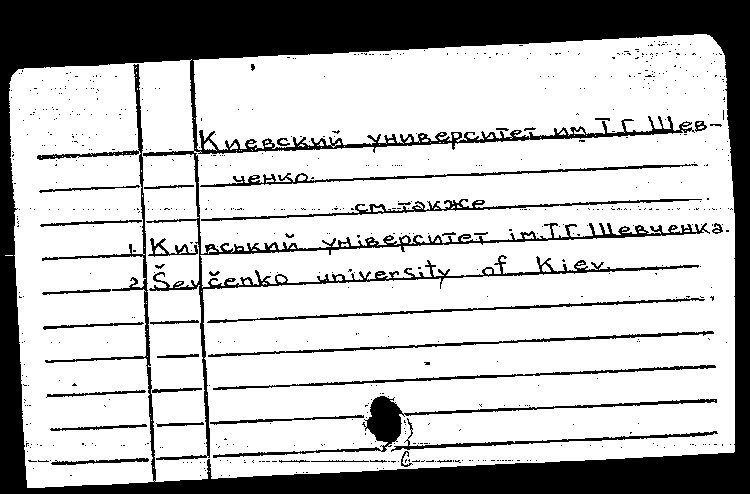 Киевский университет им.Т.Г.Шев-
ченко.
см.также
1. Київський університет ім.Т.Г.Шевченка.
2. Ševčenko university of Kiev.